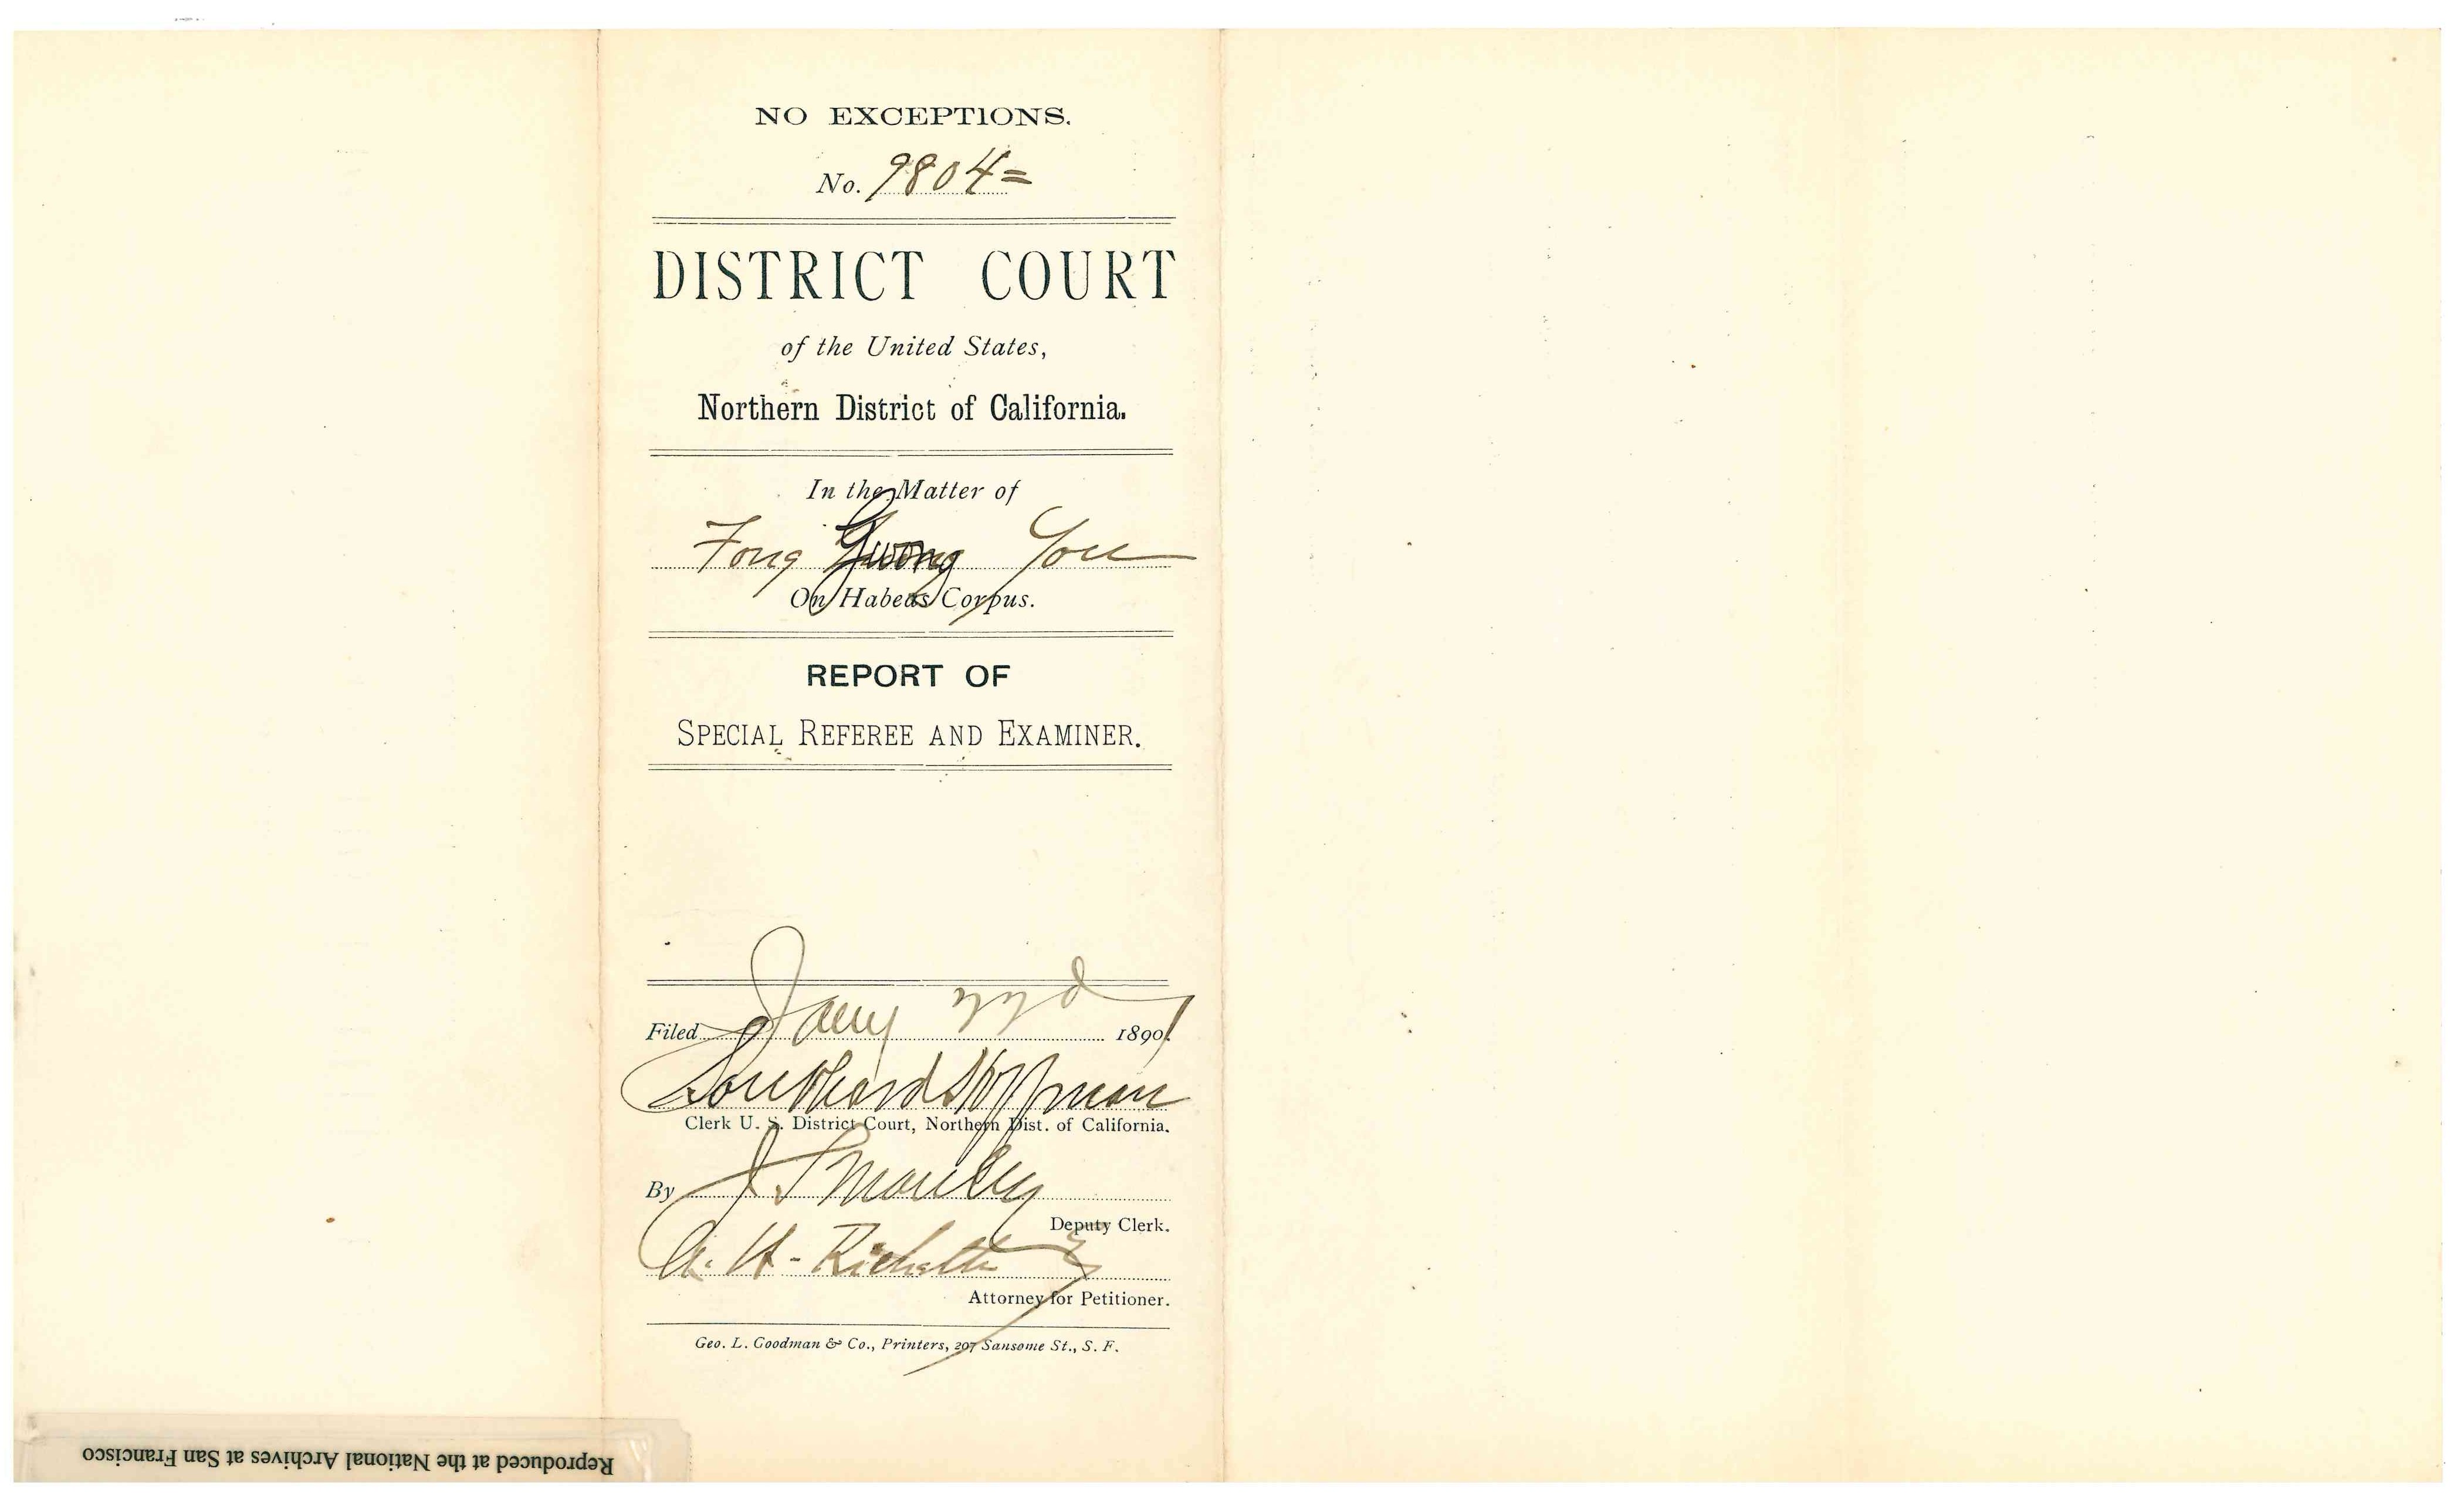 NO EXCEPTIONS.
No. 9804=
DISTRICT COURT
of the United States,
Northern District of California.
In the Matter of
Fong Gwong You
On Habeas Corpus.
REPORT OF
SPECIAL REFEREE AND EXAMINER.
Filed Jany 22d 1891
Southard Hoffman
Clerk U. S. District Court, Northern Dist. of California.
By J. S. Manley
Deputy Clerk.
A. H. Ricketts
Attorney for Petitioner.
Geo. L. Goodman & Co., Printers, 207 Sansome St., S. F.
Reproduced at the National Archives at San Francisco